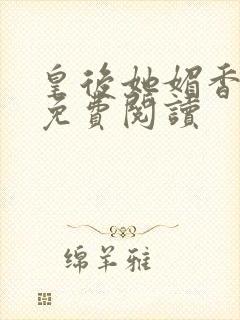 皇後她媚香
免費閱讀
绵羊雅